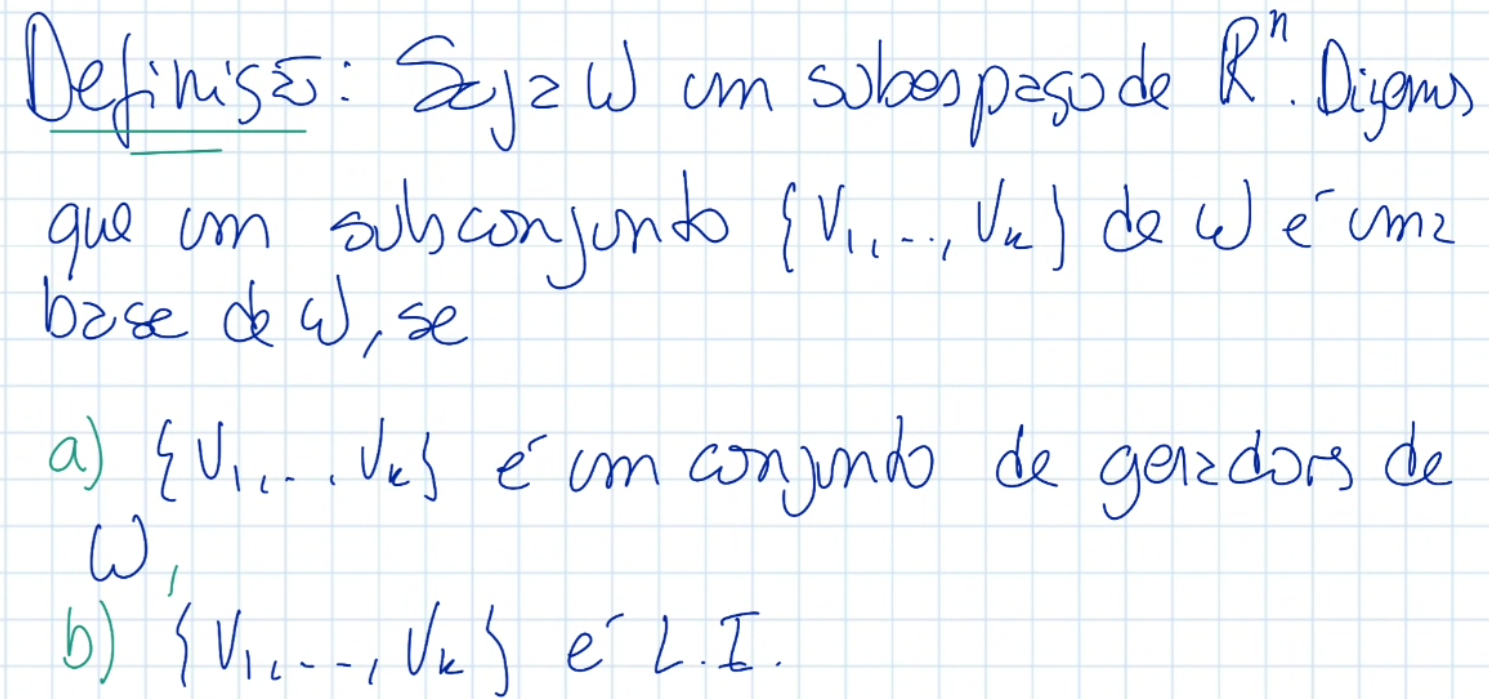 Definição: Seja W um subespaço de Rⁿ. Digamos
que um subconjunto {V₁,..., Vₖ} de W é uma
base de W, se
a) {V₁,..., Vₖ} é um conjunto de geradores de
W,
b) {V₁,..., Vₖ} é L.I.